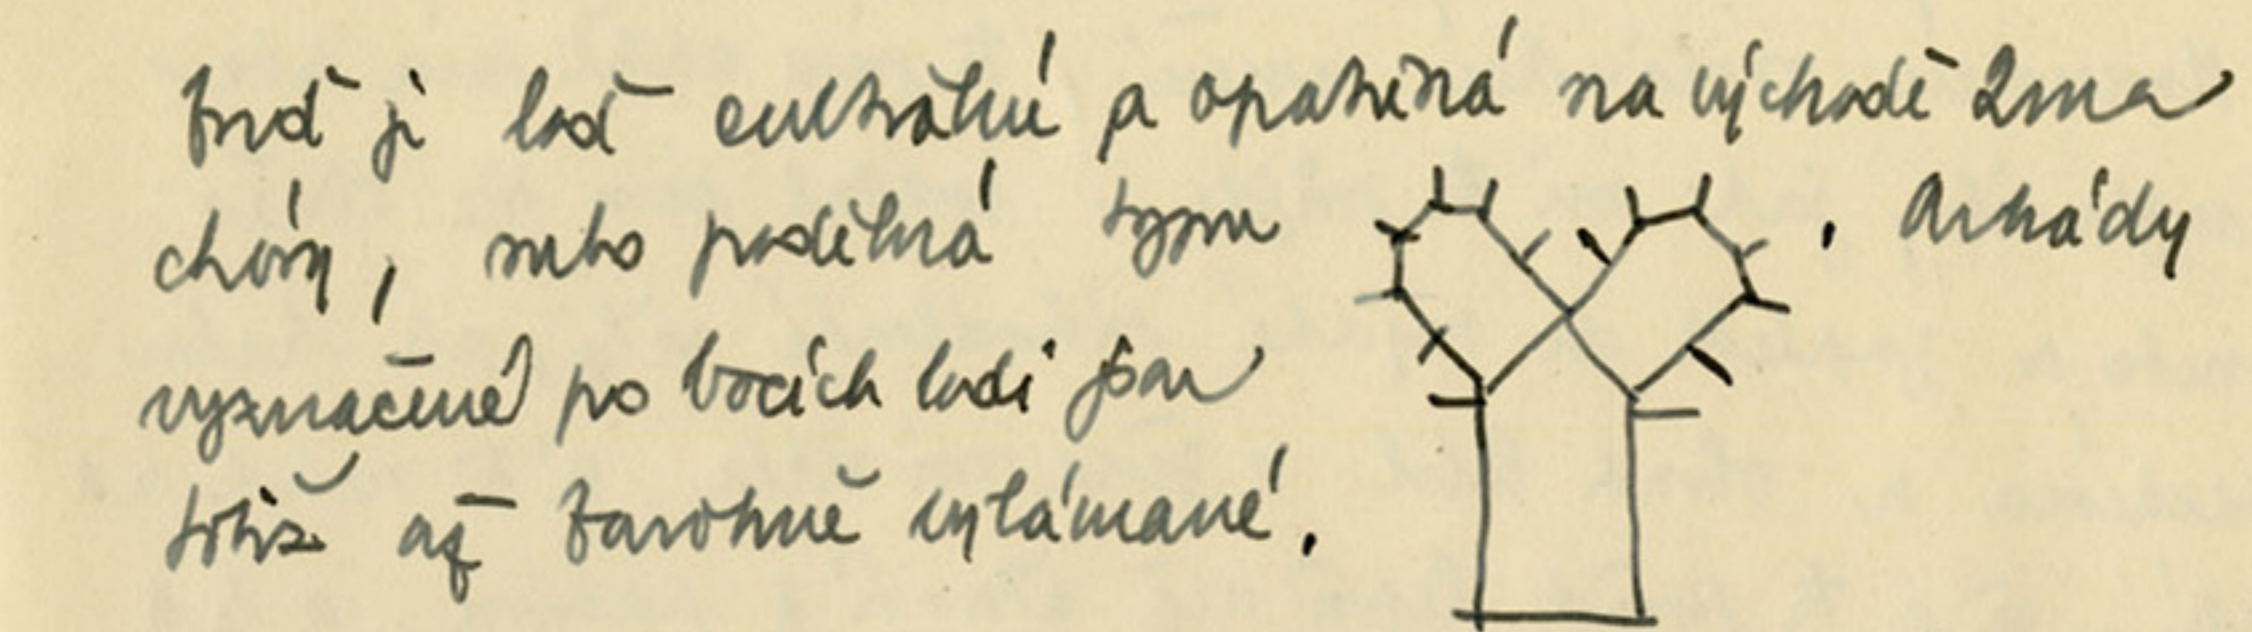 buď je loď centrální a opatřená na východě 2ma
chóry, nebo podélná typu . Arkády
vyznačené po bocích lodi jsou
totiž až barokně vylámané.